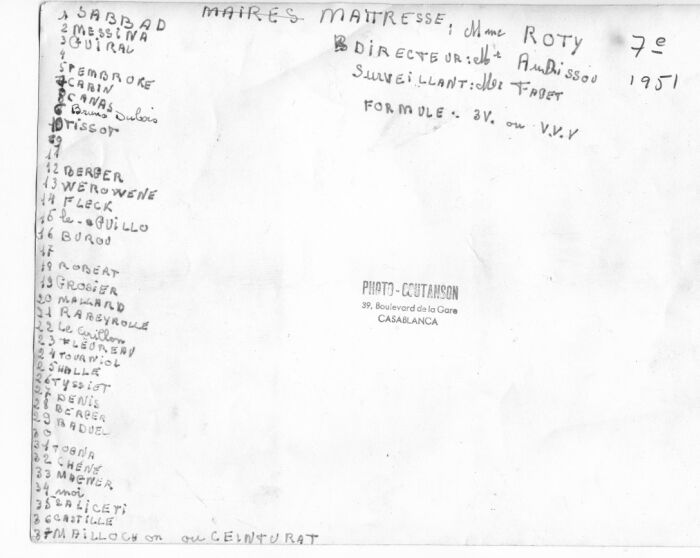 1 SABBAD
2 MESSINA
3 GUIRAL
4
5 PEMBROKE
7 CABIN
8 CANAS
6 Bruno Dubois
10 TISSOT
9
11
12 BERGER
13 WEROWENE
14 FLECK
15 le GUILLO
16 BUROU
17
18 ROBERT
19 GROSIER
20 MALLARD
21 RABEYROLLE
22 Le Guillou
23 FLEUREAU
24 TOURNIOL
25 HALLE
26 TYSSIET
27 DENIS
28 BERGER
29 BADUEL
30
31 TOGNA
32 CHÊNE
33 MAGNER
34 moi
35 SALICETI
36 CASTILLE
37 MAILLOCHON ou CEINTURAT
MAIRES MAITRESSE: Mme ROTY 7e
DIRECTEUR: Mr AUDISSOU 1951
SURVEILLANT: Mr FABET
FORMULE: 3V. ou V.V.V
PHOTO-COUTANSON
39, Boulevard de la Gare
CASABLANCA